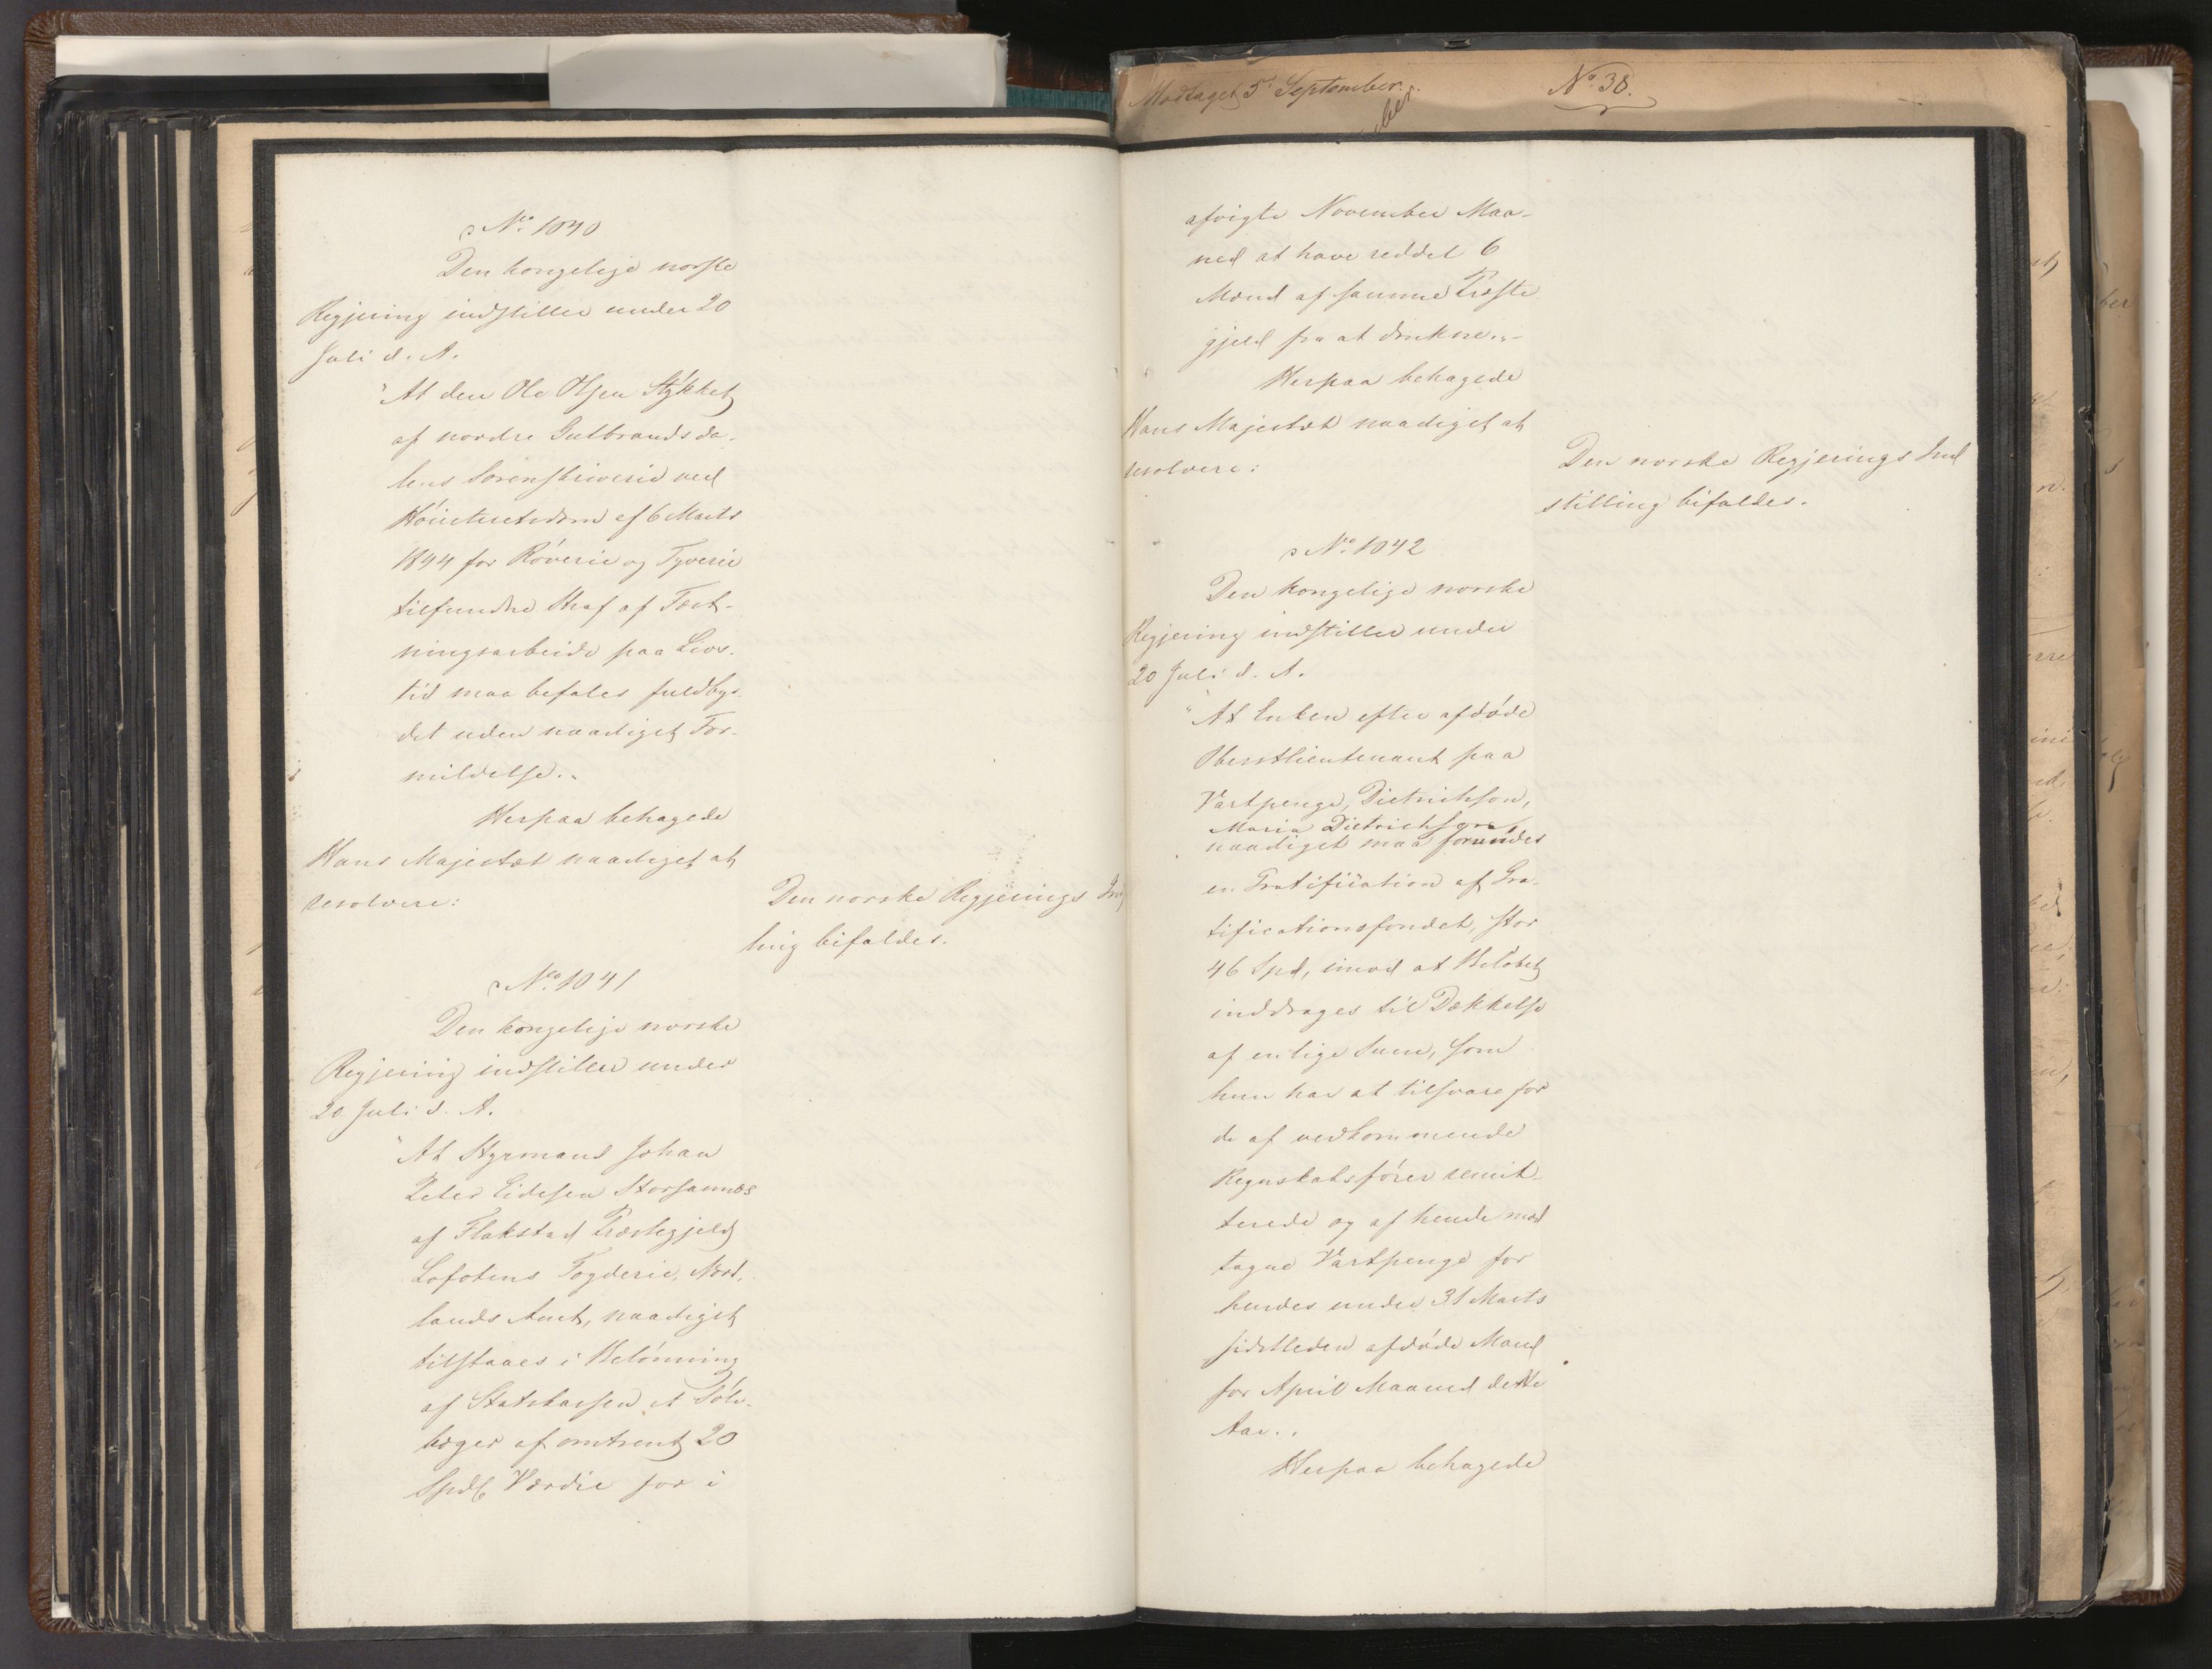 No. 1040
Den kongelige norske
Regjering indstiller under 20
Juli d. A.
"At den Ole Olsen Stykket
af nordre Gulbrandsda-
lens Sorenskriverie ved
Høiesteretsdom af 6 Marts
1844 for Røverie og Tyverie
tilfundne Straf af Fæst-
ningsarbeide paa Livs-
tid maa befales fuldbyr-
det uden naadigst For-
mildelse."
Herpaa behagede
Hans Majestæt naadigst at
resolvere:
Den norske Regjerings Ind
ling bifaldes.
No. 1041
Den kongelige norske
Regjering indstiller under
20 Juli d. A.
"At Styrmand Johan
Peter Eidesen Storsannes
af Flakstad Præstegjeld
Lofotens Fogderie, Nord-
lands Amt, naadigst
tilstaaes i Belønning
af Statskassen et Sølv-
bæger af omtrent 20
Spd Værdie for i
Modtaget 5 September.
ber
No. 38.
afvigte November Maa-
ned at have reddet 6
Mænd af samme Præste
gjeld fra at drukne."-
Herpaa behagede
Hans Majestæt naadigst at
resolvere:
Den norske Regjerings Ind
stilling bifaldes.
No. 1042
Den kongelige norske
Regjering indstiller under
20 Juli d. A.
"At Enken efter afdøde
Oberstlieutenant paa
Vartpenge, Dietrichson,
Maria Dietrichson,
naadigst maa forundes
en Gratification af Gra-
tificationsfondet, stor
46 Spd, imod at Beløbet
inddrages til Dækkelse
af en lige Sum, som
hun har at tilsvare for
de af vedkommende
Regnskabsfører remit-
terede og af hende mod
tagne Vartpenge for
hendes under 31 Marts
sidstleden afdøde Mand
for April Maaned dette
Aar."
Herpaa behagede